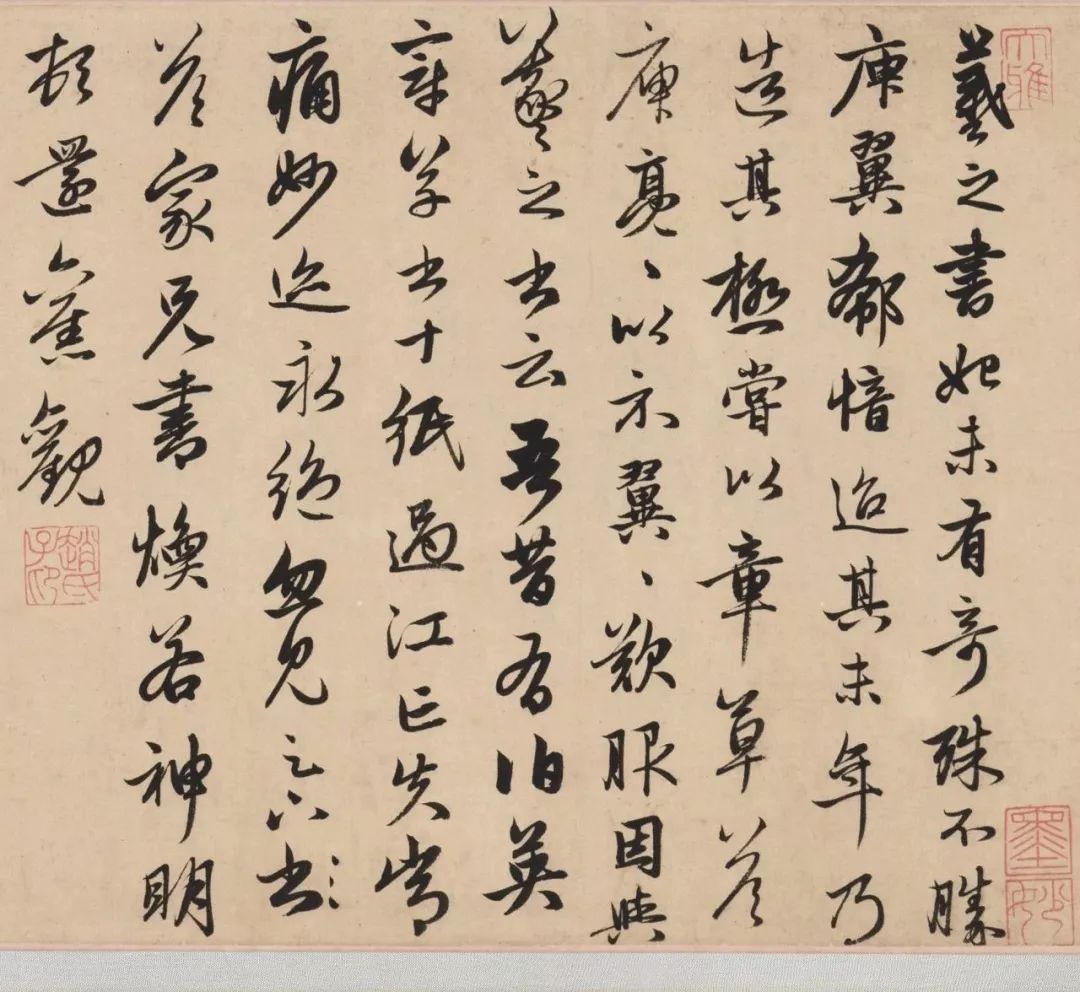 羲之書始未有奇殊不勝
庾翼郗愔迨其末年乃
造其極嘗以章草答
庾亮〻以示翼〻歎服因與
羲之書云吾昔有伯英
章草書十紙過江亡失常
痛妙迹永絕忽見足下書
答家兄書煥若神明
頓還舊觀
大雅
墨妙
趙氏子昂